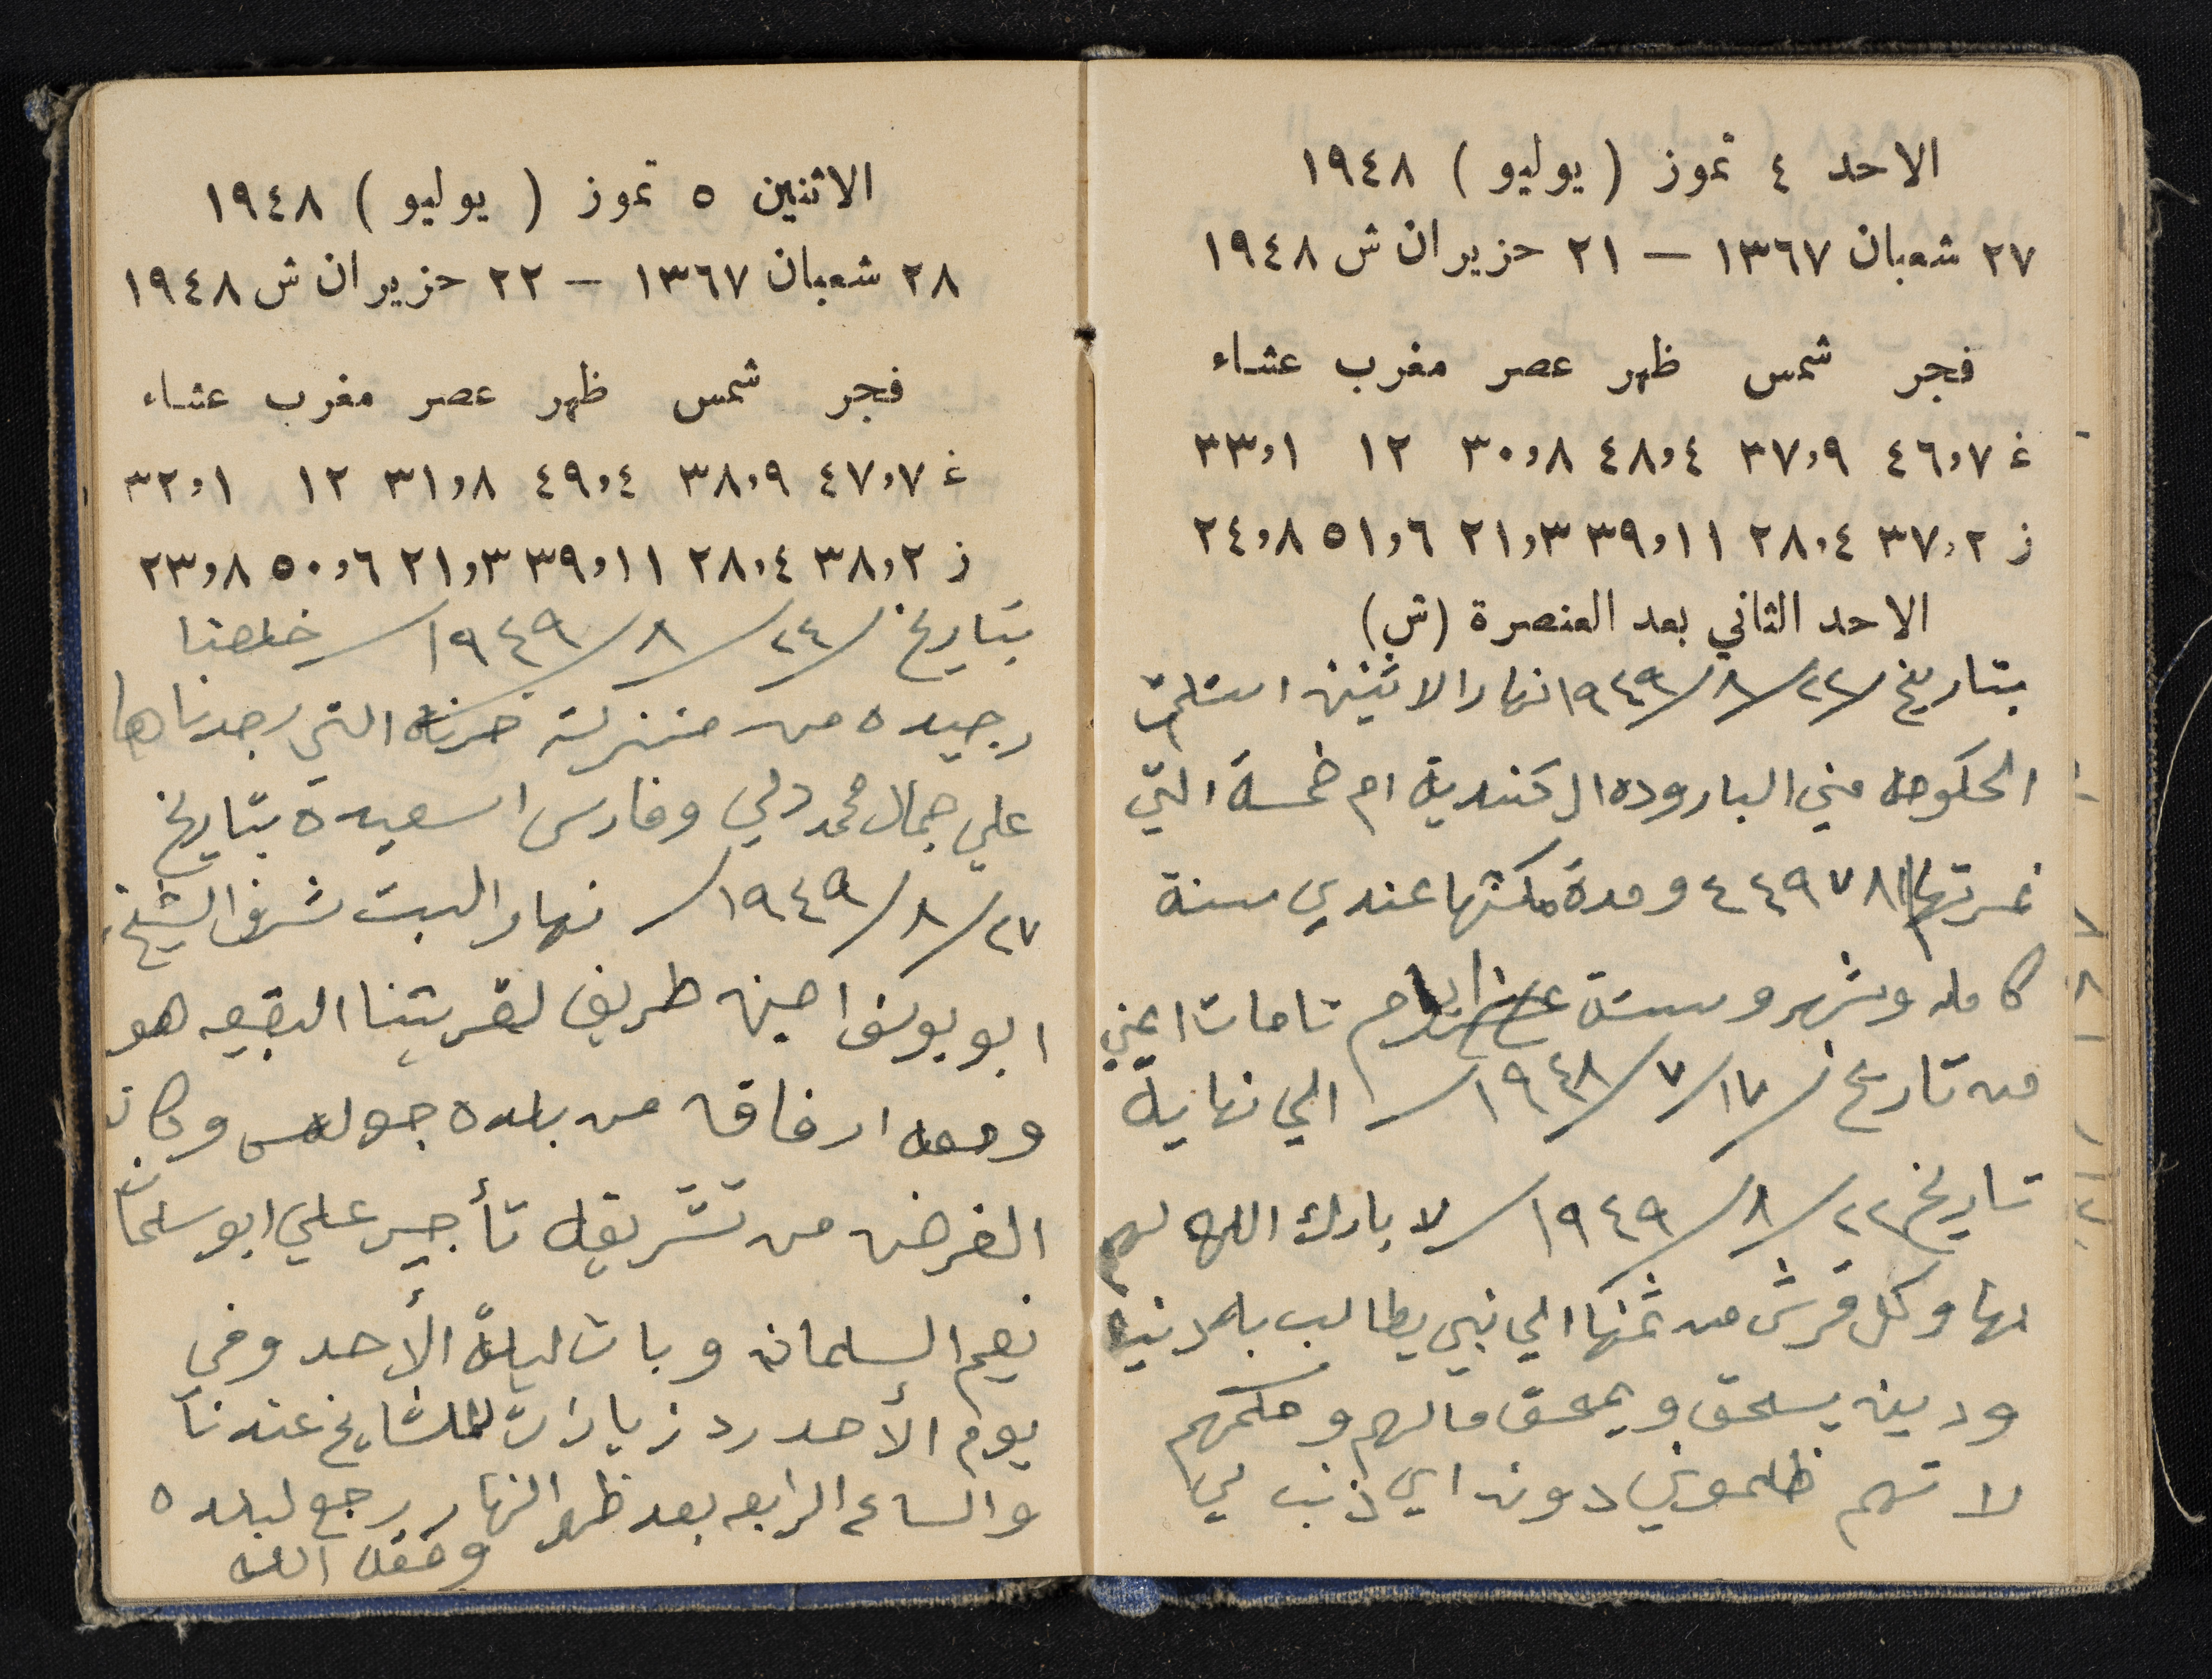 الاحد ٤ تموز ( يوليو ) ١٩٤٨
٢٧ شعبان ١٣٦٧ — ٢١ حزيران ش ١٩٤٨
فجر شمس ظهر عصر مغرب عشاء
غ ٤٦,٧ ٣٧,٩ ٤٨,٤ ٣٠,٨ ١٢ ٣٣,١
ز ٣٧,٢ ٢٨,٤ ٣٩,١١ ٢١,٣ ٥١,٦ ٢٤,٨
الاحد الثاني بعد العنصرة (ش)
بتاريخ /٢٢/٨/١٩٤٩ نهار الاثنين استلمت
الحكومه مني الباروده الكنديه ام خمسة التي
نمرتها ٤٤٩٧٨١ ومدة مكثها عندي سنة
كامله وشهر وستة ايام تامات اعني
من تاريخ /١٧/٧/١٩٤٨/ الي نهاية
تاريخ ٢٢/٨/١٩٤٩/ لا بارك الله لهم
بها وكل قرش من ثمنها الي نبي يطالب به دنيا
ودين يسحق ويمحق مالهم وحكمهم
لانهم ظلموني دون اي ذنب لي
الاثنين ٥ تموز ( يوليو ) ١٩٤٨
٢٨ شعبان ١٣٦٧ — ٢٢ حزيران ش ١٩٤٨
فجر شمس ظهر عصر مغرب عشاء
غ ٤٧,٧ ٣٨,٩ ٤٩,٤ ٣١,٨ ١٢ ٣٢,١
ز ٣٨,٢ ٢٨,٤ ٣٩,١١ ٢١,٣ ٥٠,٦ ٢٣,٨
بتاريخ /٢٤/٨/١٩٤٩/ خلصنا
رجيده من التي رجدناها
علي جمال محمد دلي وفارس اسعيد بتاريخ
٢٧/٨/١٩٤٩/ نهار السبت شرف الشيخ
ابو يوسف امين طريف لقريتنا البقيعه هو
ومعه ارفاق من بلده جولس وكان
الغرض من تشريفه تأجير علي ابو سلمان
نعيم السلمان وبات ليلة الأحد وفي
يوم الأحد رد زيارات للمشايخ عندنا
والساعه الرابعه بعد ظهر النهار رجع لبلده
وفقه الله